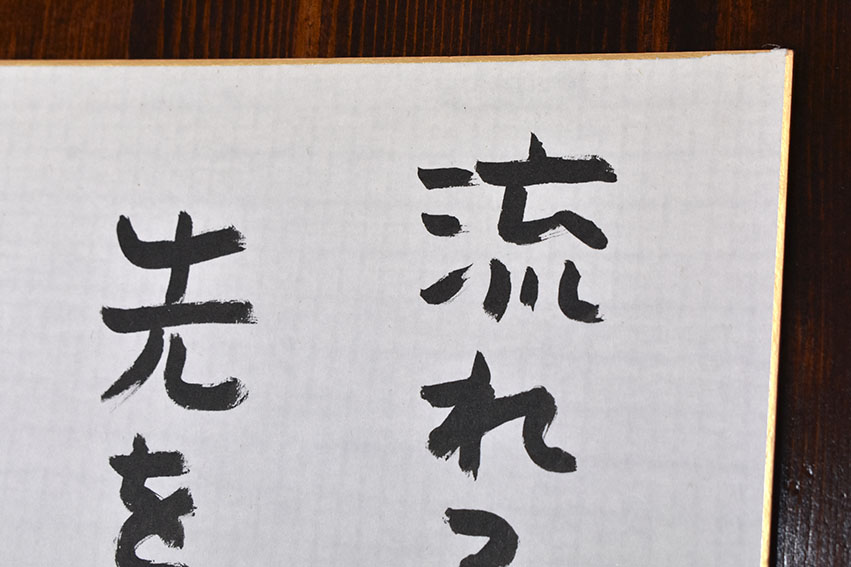 流れ
先を